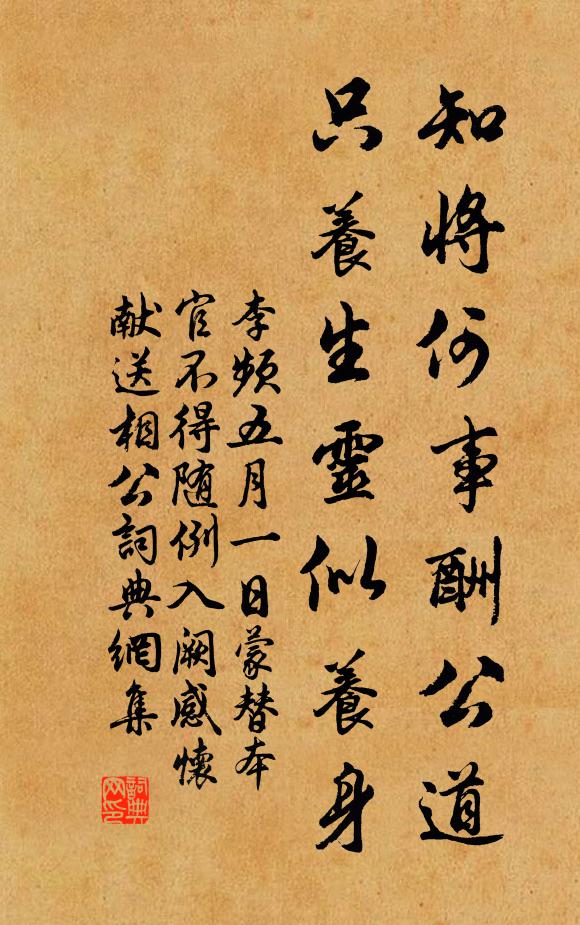 知將何事酬公道
只養生靈似養身
李頻五月一日蒙替本
官不得随例入阙感懷
献送相公詞典網集
詞典网印